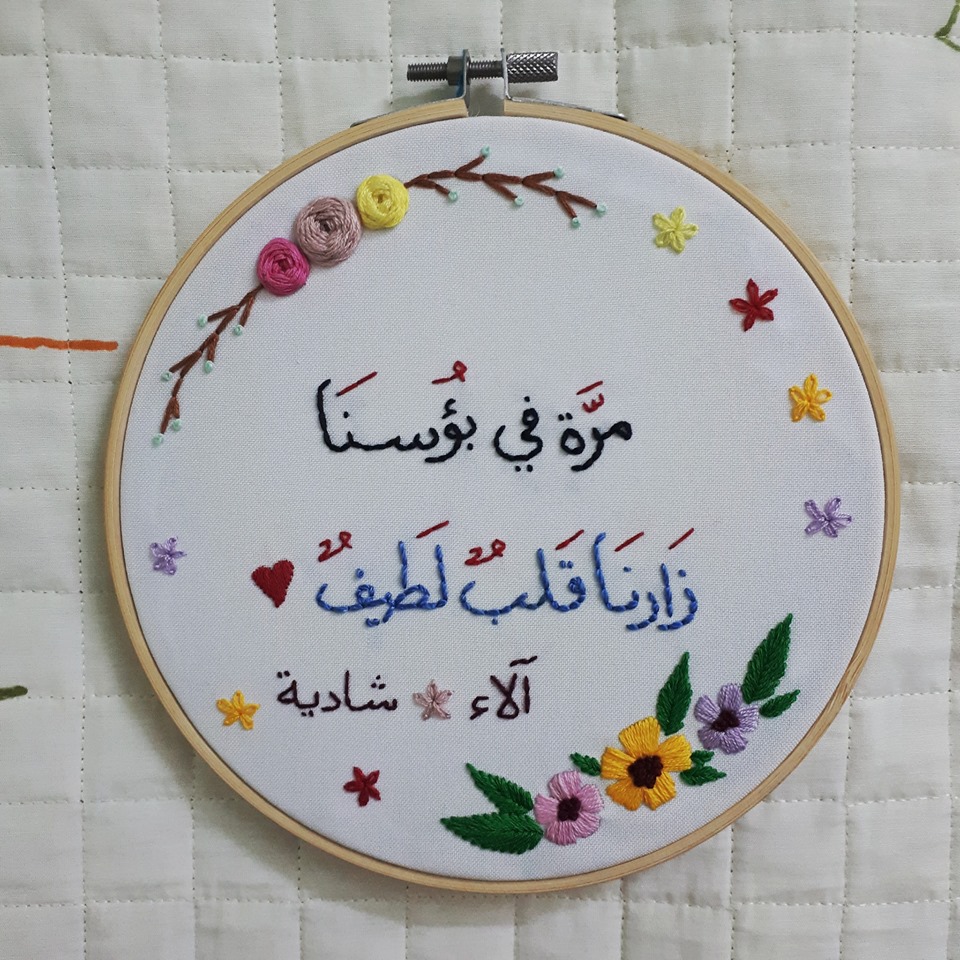 مرَّة في بُؤسنَا
زَارنَا قَلبٌ لَطيفٌ
آلاء شادية